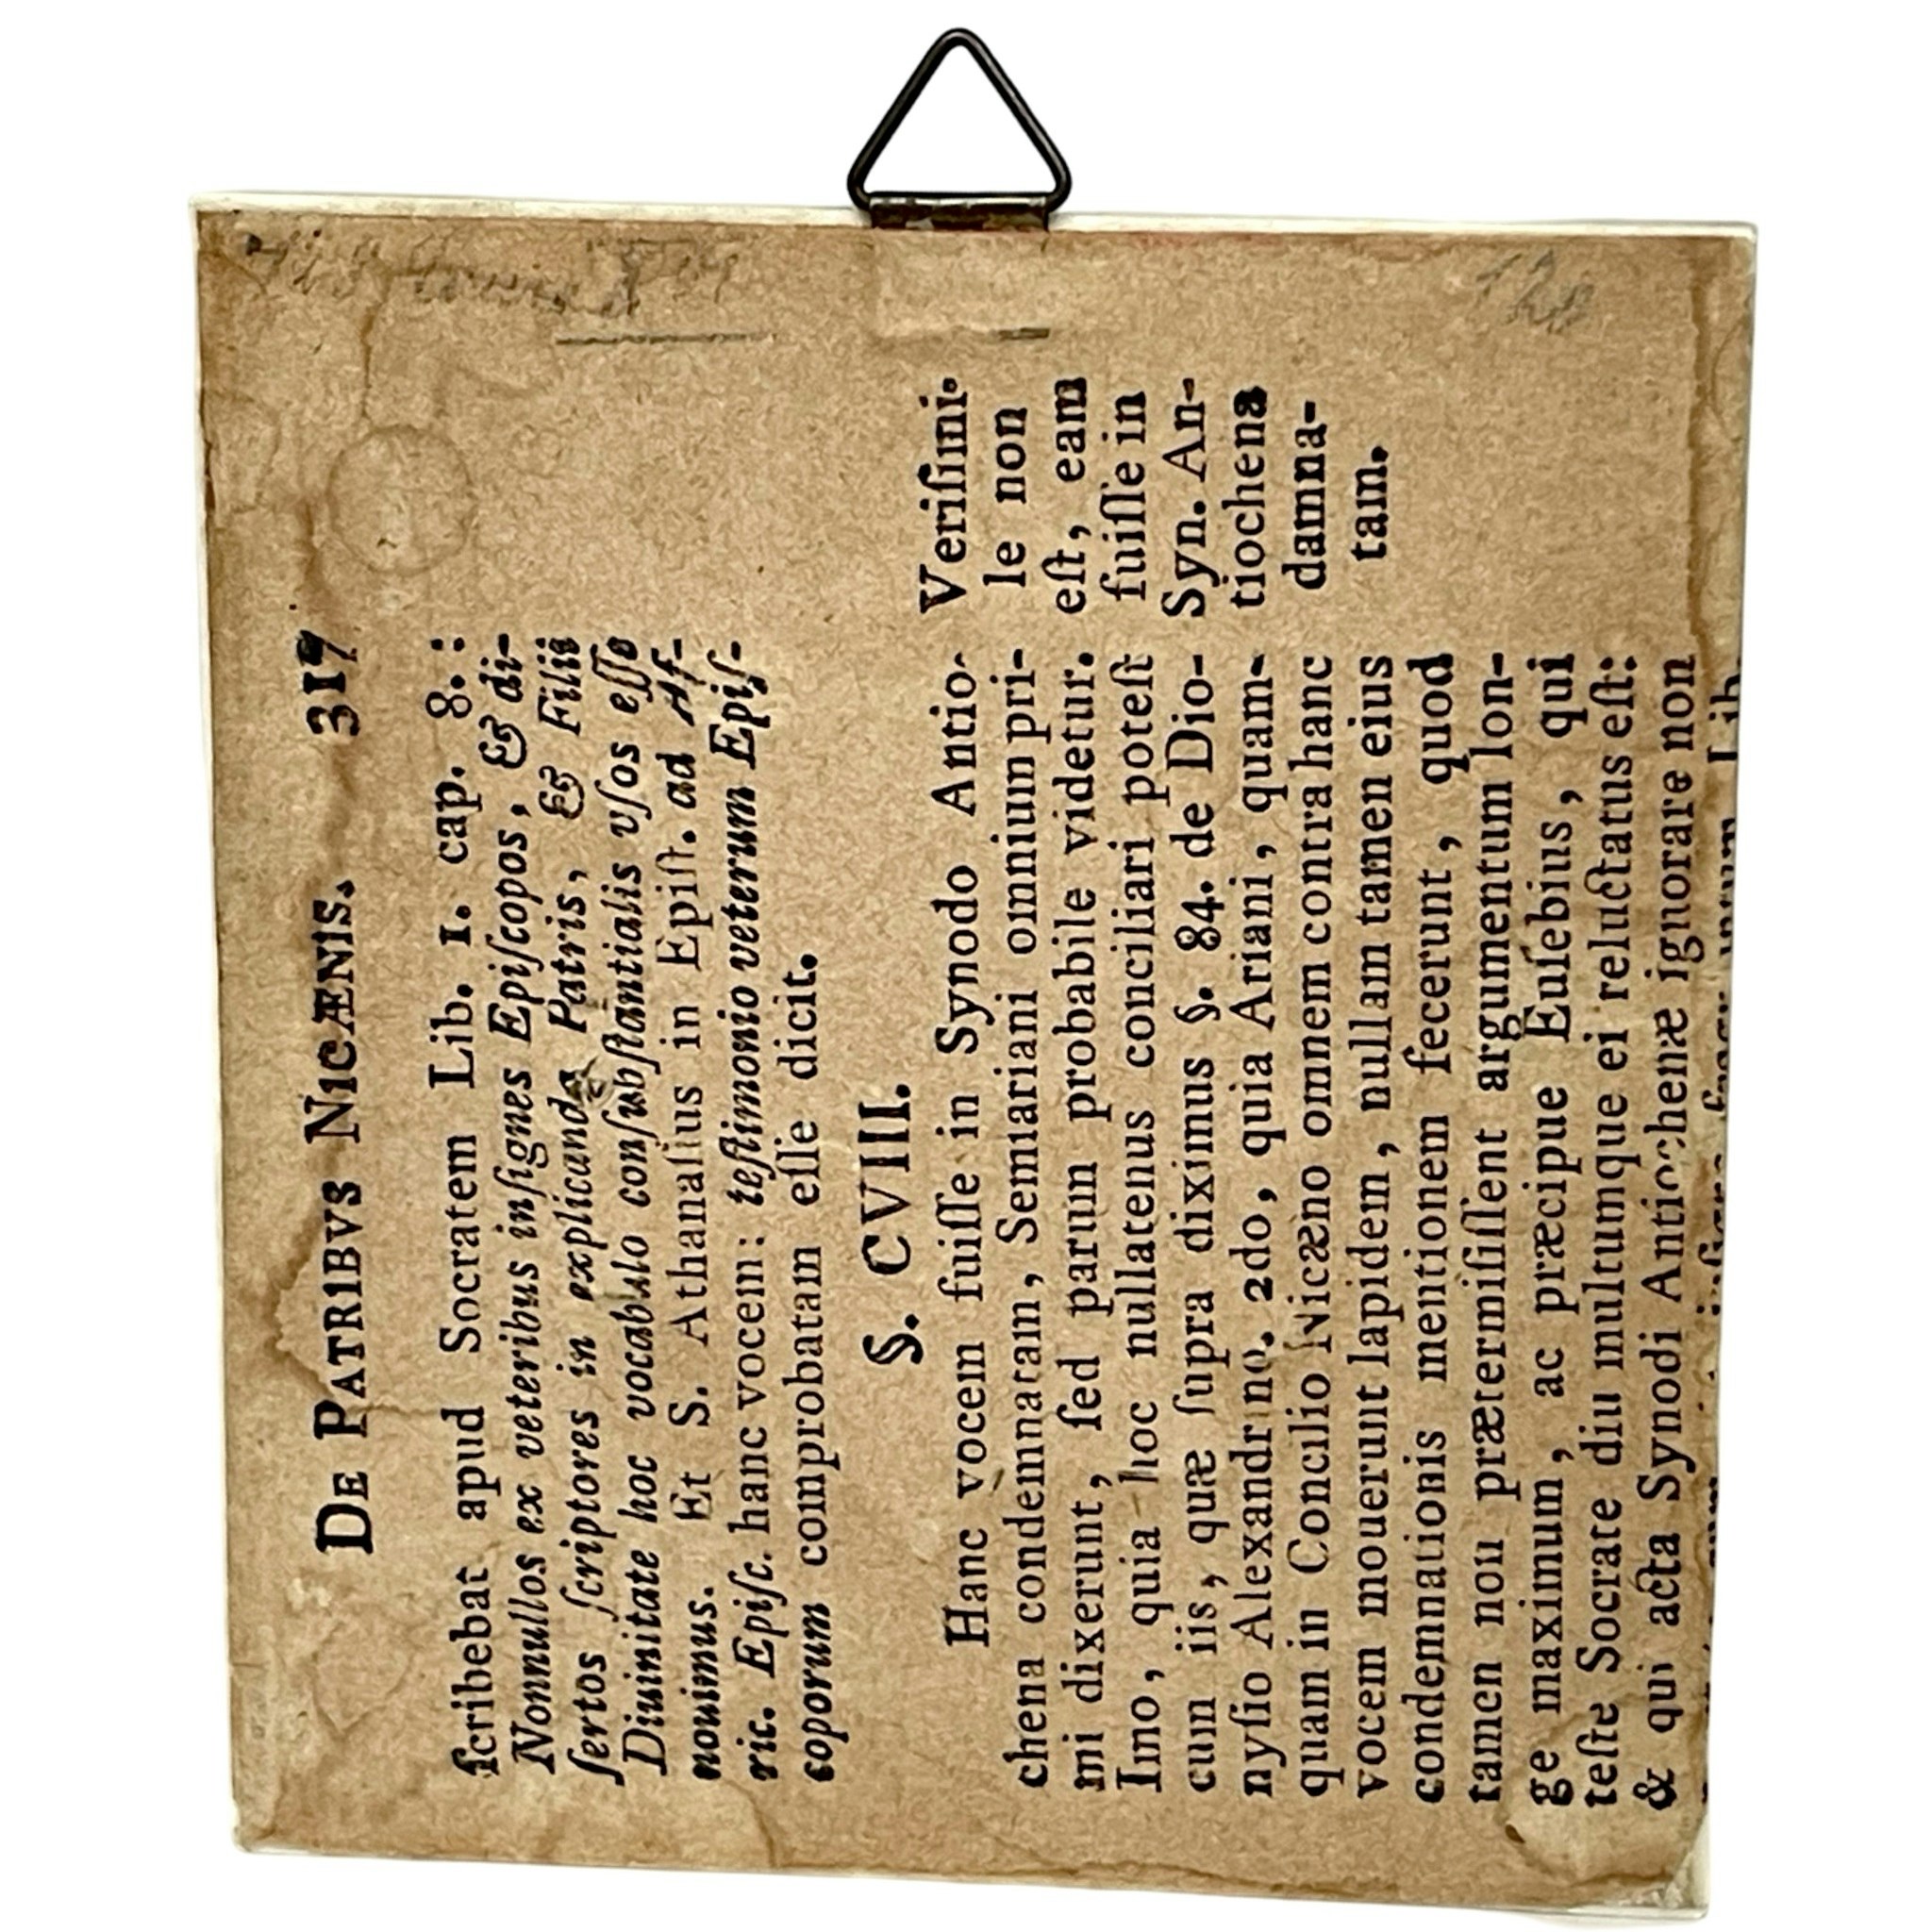 DE PATRIBVS NICÆNIS. 317
ſcribebat apud Socratem Lib. 1. cap. 8. :
Nonnullos ex veteribus inſignes Epiſcopos, & di-
ſertos ſcriptores in explicanda Patris, & Filii
Diuinitate hoc vocabulo conſubſtantialis vſos eſſe
nouimus. Et S. Athanaſius in Epiſt. ad Af-
ric. Epiſc. hanc vocem: teſtimonio veterum Epiſ-
coporum comprobatam eſſe dicit.
§. CVIII.
Hanc vocem fuiſſe in Synodo Antio-
chena condemnatam, Semiariani omnium pri-
mi dixerunt, ſed parum probabile videtur.
Imo, quia hoc nullatenus conciliari poteſt
cum iis, quæ ſupra diximus §. 84. de Dio-
nyſio Alexandrino. 2do, quia Ariani, quam-
quam in Concilio Nicæno omnem contra hanc
vocem mouerunt lapidem, nullam tamen eius
condemnationis mentionem fecerunt, quod
tamen non prætermiſiſſent argumentum lon-
ge maximum, ac præcipue Euſebius, qui
teſte Socrate diu multumque ei reluctatus eſt:
& qui acta Synodi Antiochenæ ignorare non
Veriſimi-
le non
eſt, eam
fuiſſe in
Syn. An-
tiochena
damna-
tam.